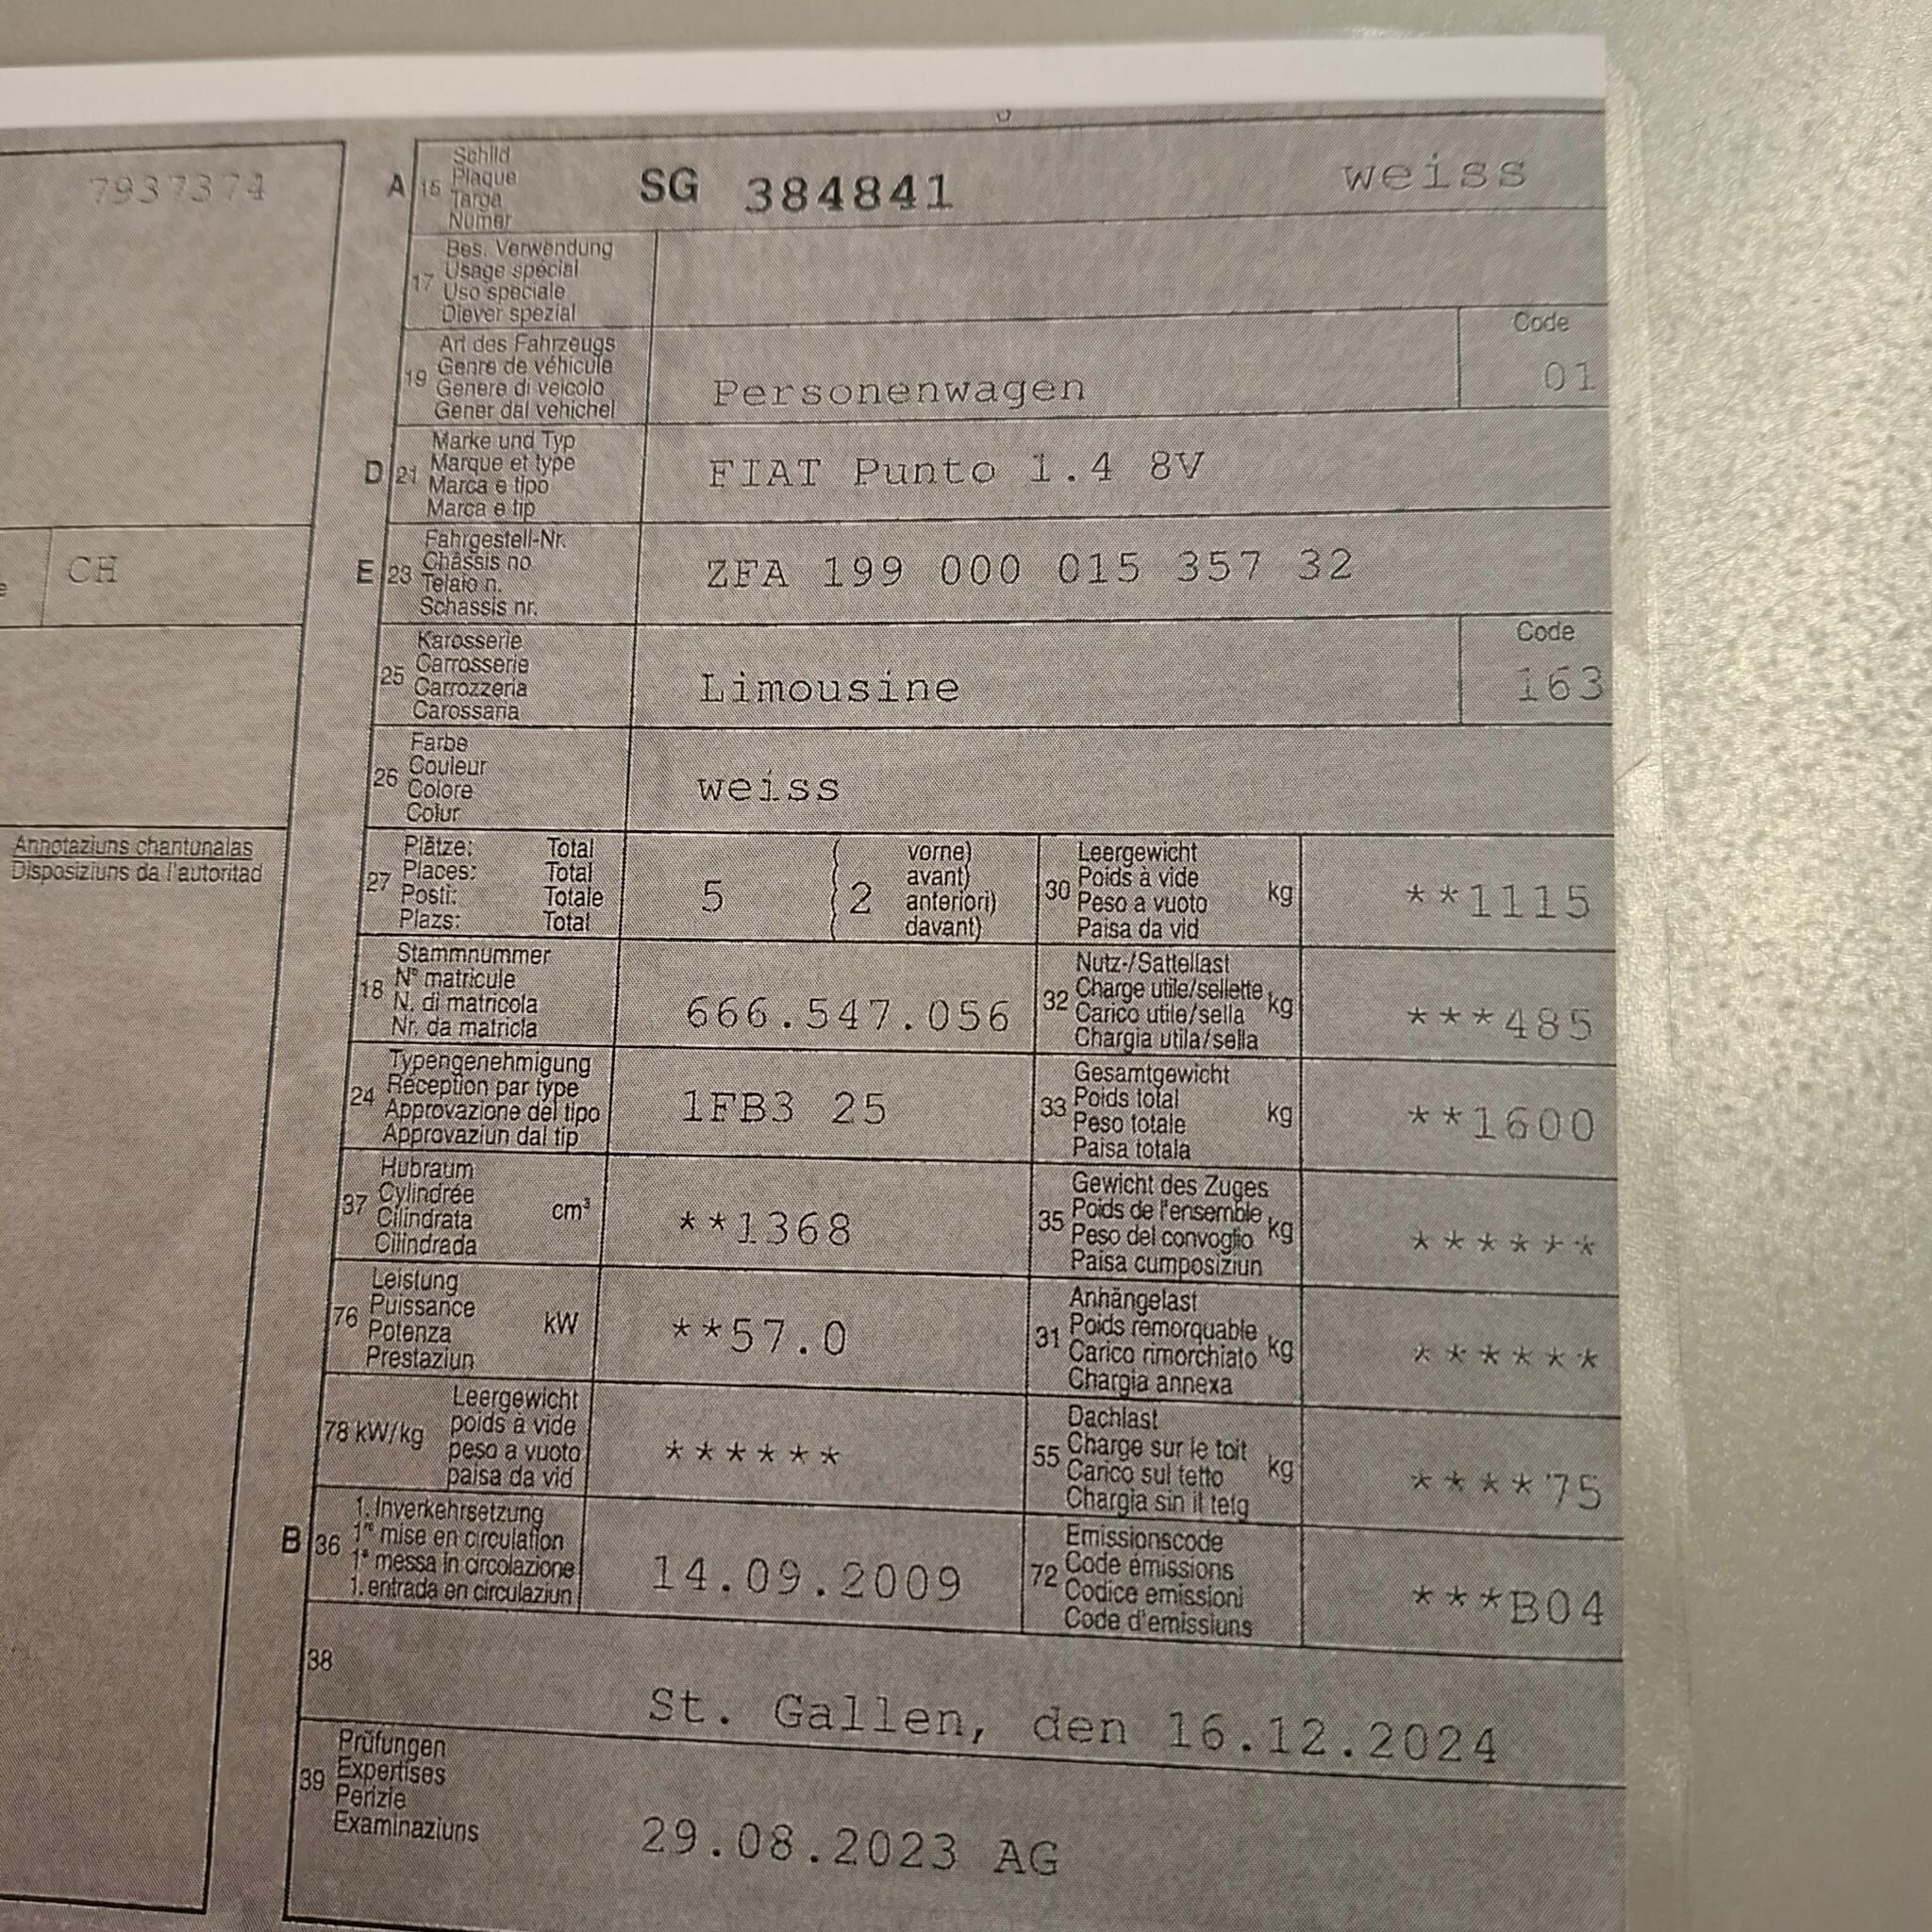 7937374
CH
Annotaziuns chantunalas
Disposiziuns da l'autoritad
A 15 Schild
Plaque
Targa
Numer
SG 384841 weiss
17 Bes. Verwendung
Usage spécial
Uso speciale
Diever spezial
19 Art des Fahrzeugs
Genre de véhicule
Genere di veicolo
Gener dal vehichel
Personenwagen
Code
01
D 21 Marke und Typ
Marque et type
Marca e tipo
Marca e tip
FIAT Punto 1.4 8V
E 23 Fahrgestell-Nr.
Châssis no
Telaio n.
Schassis nr.
ZFA 199 000 015 357 32
25 Karosserie
Carrosserie
Carrozzeria
Carossaria
Limousine
Code
163
26 Farbe
Couleur
Colore
Colur
weiss
27 Plätze: Total
Places: Total
Posti: Totale
Plazs: Total
5 ( 2 vorne)
avant)
anteriori)
davant)
30 Leergewicht
Poids à vide
Peso a vuoto
Paisa da vid
kg
**1115
18 Stammnummer
N° matricule
N. di matricola
Nr. da matricla
666.547.056
32 Nutz-/Sattellast
Charge utile/sellette
Carico utile/sella
Chargia utila/sella
kg
***485
24 Typengenehmigung
Réception par type
Approvazione del tipo
Approvaziun dal tip
1FB3 25
33 Gesamtgewicht
Poids total
Peso totale
Paisa totala
kg
**1600
37 Hubraum
Cylindrée
Cilindrata
Cilindrada
cm³
**1368
35 Gewicht des Zuges
Poids de l'ensemble
Peso del convoglio
Paisa cumposiziun
kg
******
76 Leistung
Puissance
Potenza
Prestaziun
kW
**57.0
31 Anhängelast
Poids remorquable
Carico rimorchiato
Chargia annexa
kg
******
78 kW/kg Leergewicht
poids à vide
peso a vuoto
paisa da vid
******
55 Dachlast
Charge sur le toit
Carico sul tetto
Chargia sin il tetg
kg
****75
B 36 1. Inverkehrsetzung
1re mise en circulation
1a messa in circolazione
1. entrada en circulaziun
14.09.2009
72 Emissionscode
Code émissions
Codice emissioni
Code d'emissiuns
***B04
38
St. Gallen, den 16.12.2024
39 Prüfungen
Expertises
Perizie
Examinaziuns
29.08.2023 AG